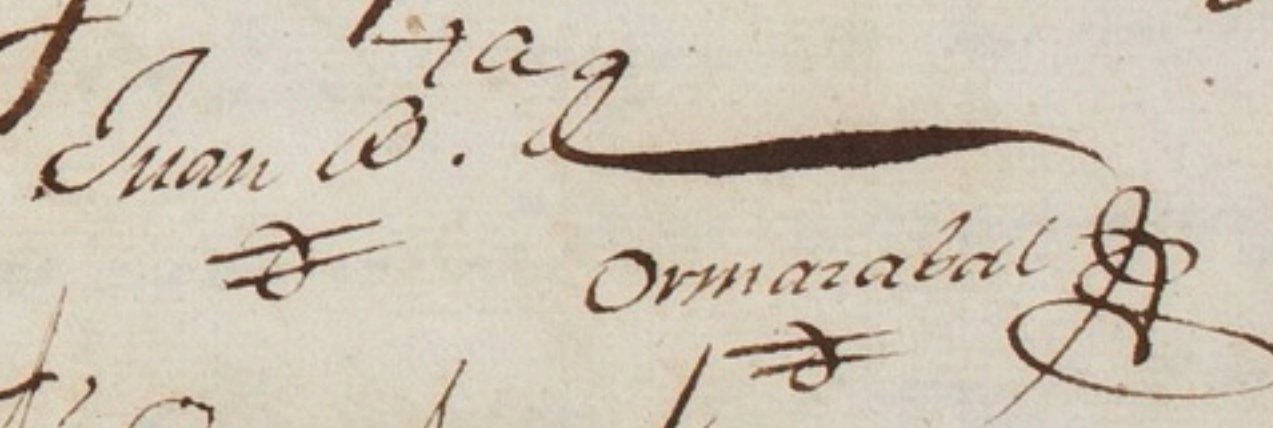 Juan B. de
Ormarabal